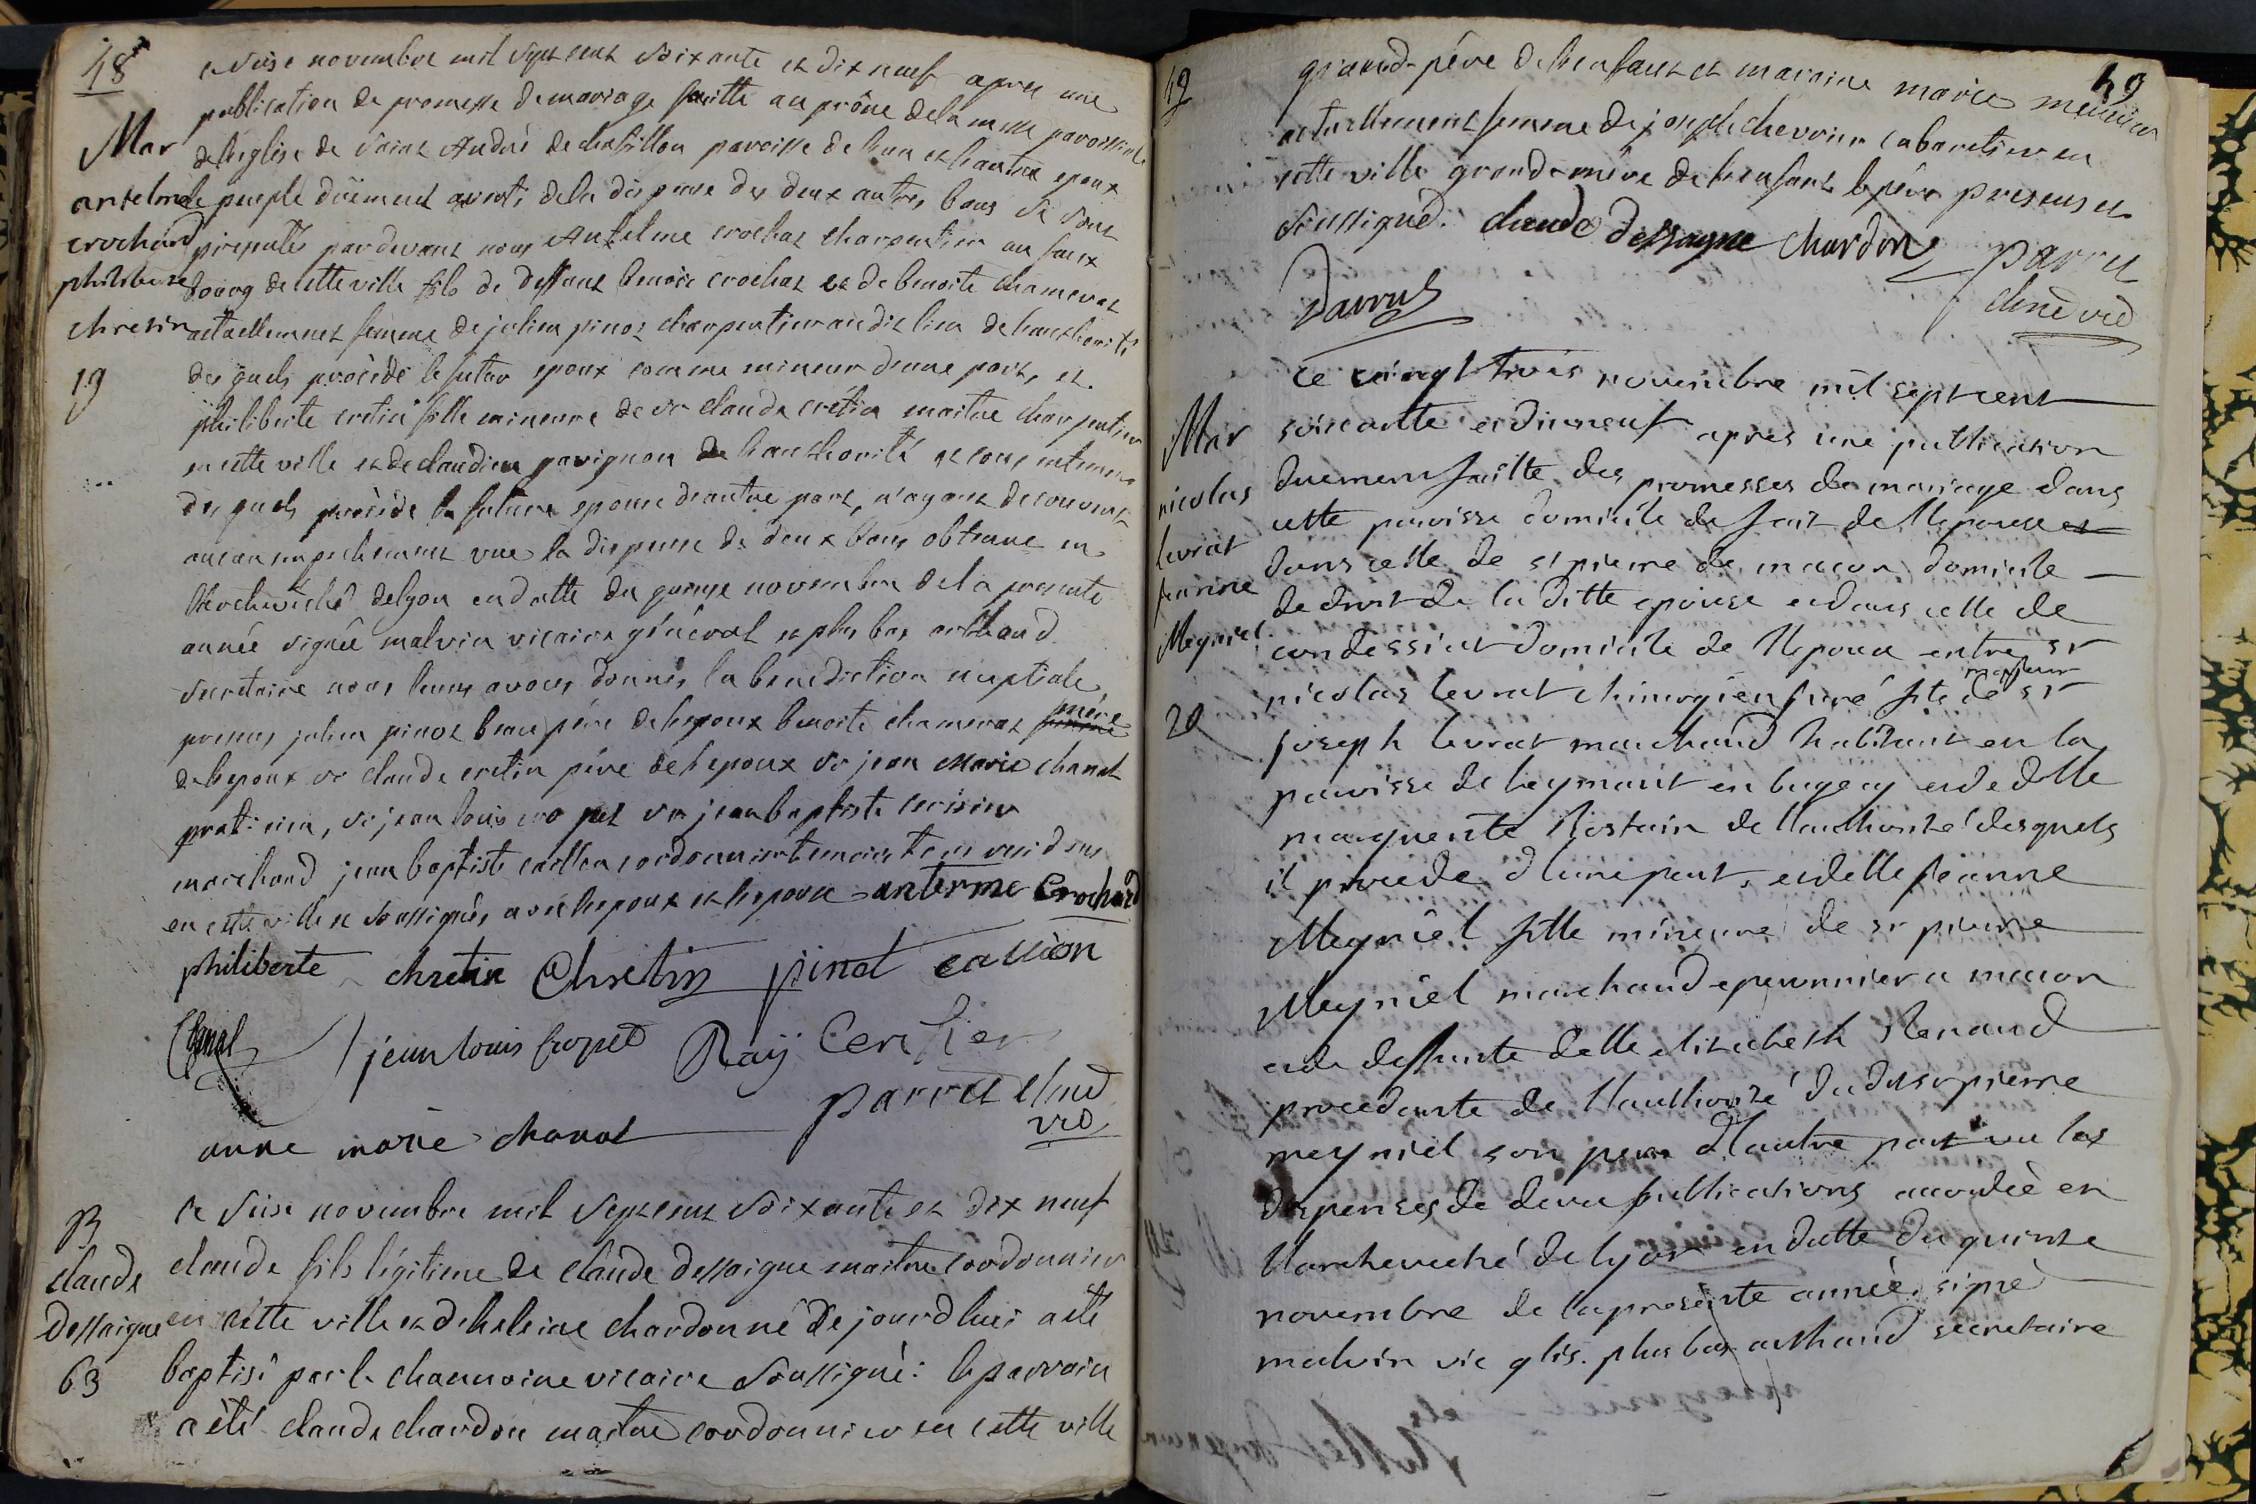 48
ce seise novembre mil sept cent soixante et dix neuf apres une
publication de promesse de mariage faitte au prône de la messe paroissiale
Mar
de leglise de saint André de chatillon paroisse de lun et lautre epoux
antelme
le peuple düement averti de la dispense des deux autres bans se sont
crochard
presentés pardevant nous Antelme crochat charpentier au faux
philiberte
bourg de cette ville fils de deffunt benoit crochat et de benoite chamerat
chretin
actuellement femme de julien pinot charpentier audit lieu de lauthorité
19
des quels procède le futur epoux comme mineur dune part, et
philiberte cretin fille mineure de sr claude crétin maitre charpentier
en cette ville et de claudine gavignon de lauthorité et consentement
des quels procède la future epouse dautre part, n'ayant decouvert
aucun empechement vue la dispense de deux bans obtenue en
l'archevêché de lyon en datte du quinze novembre de la presente
année signée malvin vicaire général et plus bas arthaud
secretaire nous leurs avons donnés la benediction nuptiale,
presents julien pinot beau père de lepoux benoite chamerat mère
de lepoux sr claude cretin père de lepoux sr jean marie chanal
praticien, sr jean louis cropet sr jean baptiste cerisier
marchand jean baptiste caillon cordonnier temoins tous residens
en cette ville et soussignés avec lepoux et lepouse anterme Crochard
philiberte chretin Chretin pinot caillion
Chanal jean louis Cropet Raÿ Cerisier
parret chne
vic
anne marie chanal
B
ce seise novembre mil sept cent soixante et dix neuf
claude
claude fils légitime de claude dessaigne maitre cordonnier
Dessaigne
en cette ville et dheleine chardon né de jourdhui a été
63
baptisé par le channoine vicaire soussigné: le parrain
a été claude chardon maitre cordonnier en cette ville
49
grand-père de lenfant et maraine marie
actuellement femme de joseph chevrier cabaretier en
cette ville grand-mère de lenfant le père present et
soussigné. claude dessagne chardon parret
chne vic
ce vingt trois novembre mil sept cent
Mar
soixante et dixneuf apres une publication
nicolas
duement faitte des promesses de mariage dans
levrat
cette paroisse domicile de fait de l'epouse et
jeanne
dans celle de st pierre de macon domicile
Meyniel
de droit de la ditte epouse et dans celle de
condessiat domicile de l'epoux entre sr
majeur
20
nicolas levrat chirurgien juré fils de sr
joseph levrat marchand habitant en la
paroisse de leymant en bugey et de delle
marguerite Rostain de l'authorité desquels
il procede d'une part, et delle jeanne
Meyniel fille mineure de sr pierre
Meyniel marchand eperonnier a macon
et de deffunte delle elizabeth Renaud
procedante de l'authorité du dit sr pierre
meyniel son pere d'autre part vu les
dispenses de deux publications accordée en
l'archeveché de lyon en datte du quinze
novembre de la presente année signé
malvin vic glis. plus bas arthaud secretaire